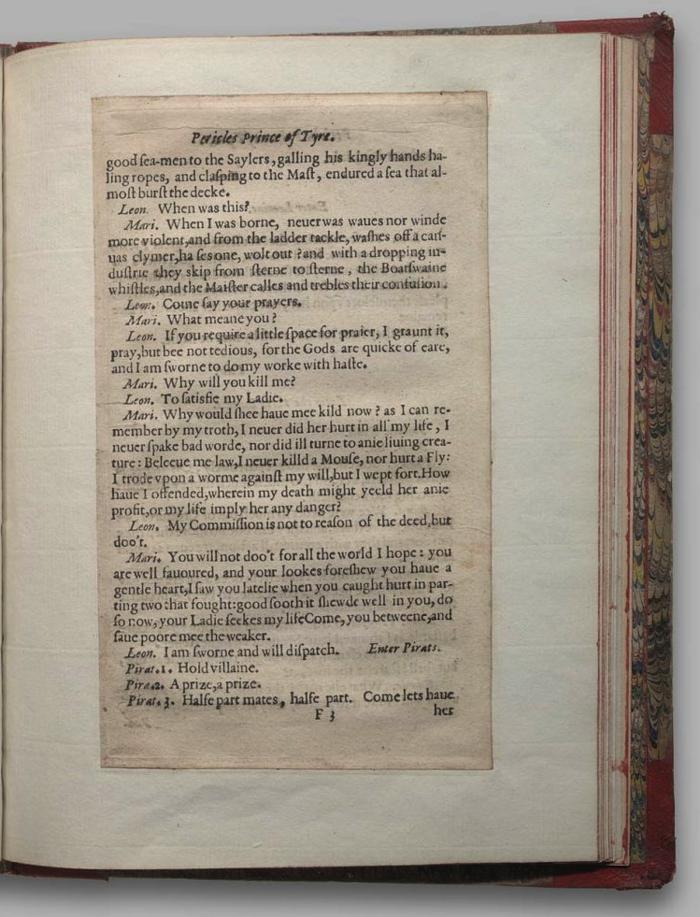 Pericles Prince of Tyre.
good ſea-men to the Saylers, galling his kingly hands ha-
ling ropes, and claſping to the Maſt, endured a ſea that al-
moſt burſt the decke.
Leon. When was this?
Mari. When I was borne, neuer was waues nor winde
more violent, and from the ladder tackle, waſhes off a canſ-
uas clymer, ha ſes one, wolt out ? and with a dropping in-
duſtrie they skip from ſterne to ſterne, the Boatſwaine
whiſtles, and the Maiſter calles and trebles their confuſion.
Leon. Come ſay your prayers.
Mari. What meane you?
Leon. If you require a little ſpace for praier, I graunt it,
pray, but bee not tedious, for the Gods are quicke of eare,
and I am ſworne to do my worke with haſte.
Mari. Why will you kill me?
Leon. To ſatisfie my Ladie.
Mari. Why would ſhee haue mee kild now ? as I can re-
member by my troth, I neuer did her hurt in all my life, I
neuer ſpake bad worde, nor did ill turne to anie liuing crea-
ture : Beleeue me law, I neuer killd a Mouſe, nor hurt a Fly:
I trode vpon a worme againſt my will, but I wept fort. How
haue I offended, wherein my death might yeeld her anie
profit, or my life imply her any danger?
Leon. My Commiſſion is not to reaſon of the deed, but
doo't.
Mari. You will not doo't for all the world I hope : you
are well fauoured, and your lookes foreſhew you haue a
gentle heart, I ſaw you latelie when you caught hurt in par-
ting two that fought: good ſooth it ſhewde well in you, do
ſo now, your Ladie ſeekes my life Come, you betweene, and
ſaue poore mee the weaker.
Leon. I am ſworne and will diſpatch. Enter Pirats.
Pirat. 1. Hold villaine.
Pira. 2. A prize, a prize.
Pirat. 3. Halfe part mates, halfe part. Come lets haue
F 3 her